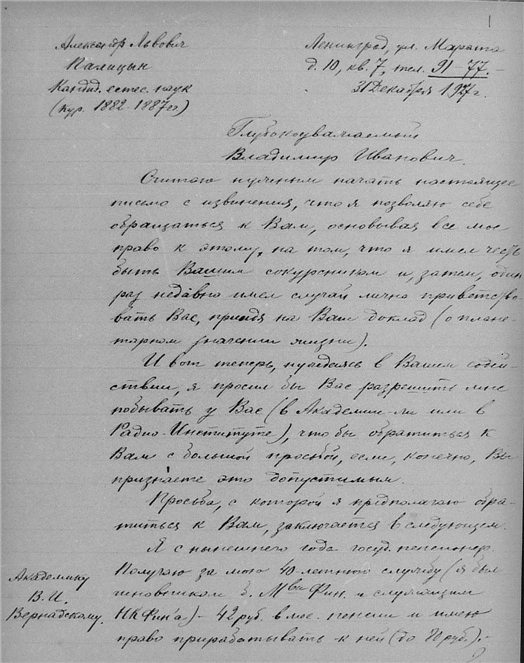 1
Александр Львович
Палицын
Кандид. естес. наук
(кур. 1882-1887 гг)
Ленинград, ул. Марата
д. 10, кв. 7, тел. 21 77.-
31 Декабря 1927 г.
Глубокоуважаемый
Владимир Иванович.
Считаю нужным начать настоящее
письмо с извинения, что я позволяю себе
обращаться к Вам, основывая все мое
право к этому, на том, что я имел честь
быть Вашим сокурсником и, затем, один
раз недавно имел случай лично приветство
вать Вас, придя на Ваш доклад (о плане-
тарном значении жизни).
И вот теперь, нуждаясь в Вашем содей-
ствии, я просил бы Вас разрешить мне
побывать у Вас (в Академии-ли или в
Радио-Институте), что бы обратиться к
Вам с большой просьбой, если, конечно, Вы
признаете это допустимым.
Просьба, с которой я предполагаю обра-
титься к Вам, заключается в следующем.
Я с нынешнего года госуд. пенсионер.
Получаю за мою 40-летнюю службу (я был
чиновником б. М-ва Фин. и служащим
НКФин'а) - 42 руб. в мес. пенсии и имею
право прирабатывать к ней (до руб.).-
Академику
В. И.
Вернадскому.